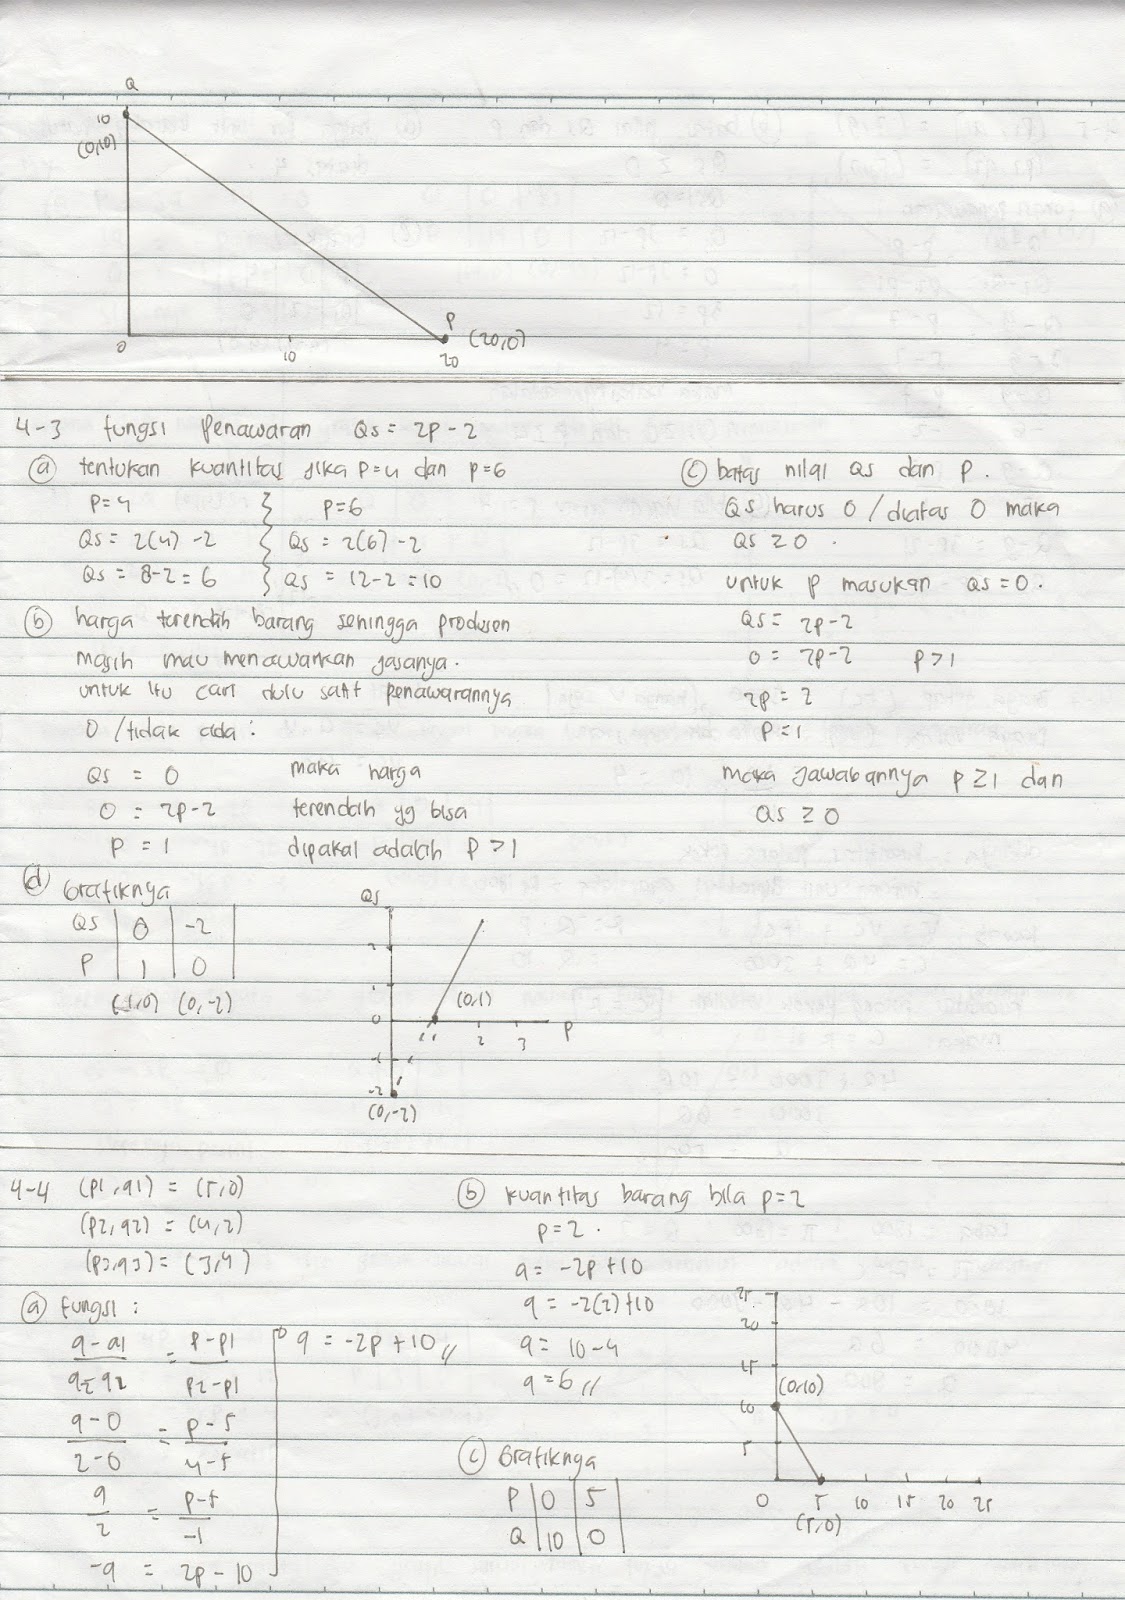 Q
10
(0,10)
P (20,0)
0 10 20
4-3 fungsi penawaran Qs = 2p - 2
(a) tentukan kuantitas jika p=4 dan p=6
p=4
Qs = 2(4) - 2
Qs = 8-2 = 6
p=6
Qs = 2(6) - 2
Qs = 12-2 = 10
(b) harga terendah barang sehingga produsen
masih mau menawarkan jasanya.
untuk itu cari dulu saat penawarannya
0 / tidak ada :
Qs = 0
0 = 2p-2
p = 1
maka harga
terendah yg bisa
dipakai adalah p > 1
(c) batas nilai Qs dan p.
Qs harus 0 / diatas 0 maka
Qs ≥ 0
untuk p masukan Qs = 0.
Qs = 2p-2
0 = 2p-2 p>1
2p = 2
p = 1
maka jawabannya p ≥ 1 dan
Qs ≥ 0
(d) Grafiknya
Qs | 0 | -2 |
P | 1 | 0 |
(1,0) (0,-2)
Qs
2
1
0
-1
-2
(0,1)
1 2 3 P
(0,-2)
4-4 (p1,q1) = (5,0)
(p2,q2) = (4,2)
(p3,q3) = (3,4)
(a) fungsi :
q-q1 = p-p1
p2-p1
q-0 = p-5
2-0 4-5
q = p-5
2 -1
-q = 2p - 10
q = -2p + 10 //
(b) kuantitas barang bila p=2
p=2.
q = -2p+10
q = -2(2)+10
q = 10-4
q = 6 //
(c) Grafiknya
P | 0 | 5 |
Q | 10 | 0 |
25
20
15
10
5
(0,10)
0 5 10 15 20 25
(5,0)